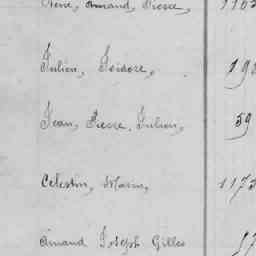 René, Amand, Pierre, 1162
Julien, Isidore, 198
Jean, Pierre, Julien, 59
Célestin, Marin, 1173
Amand Joseph Gilles